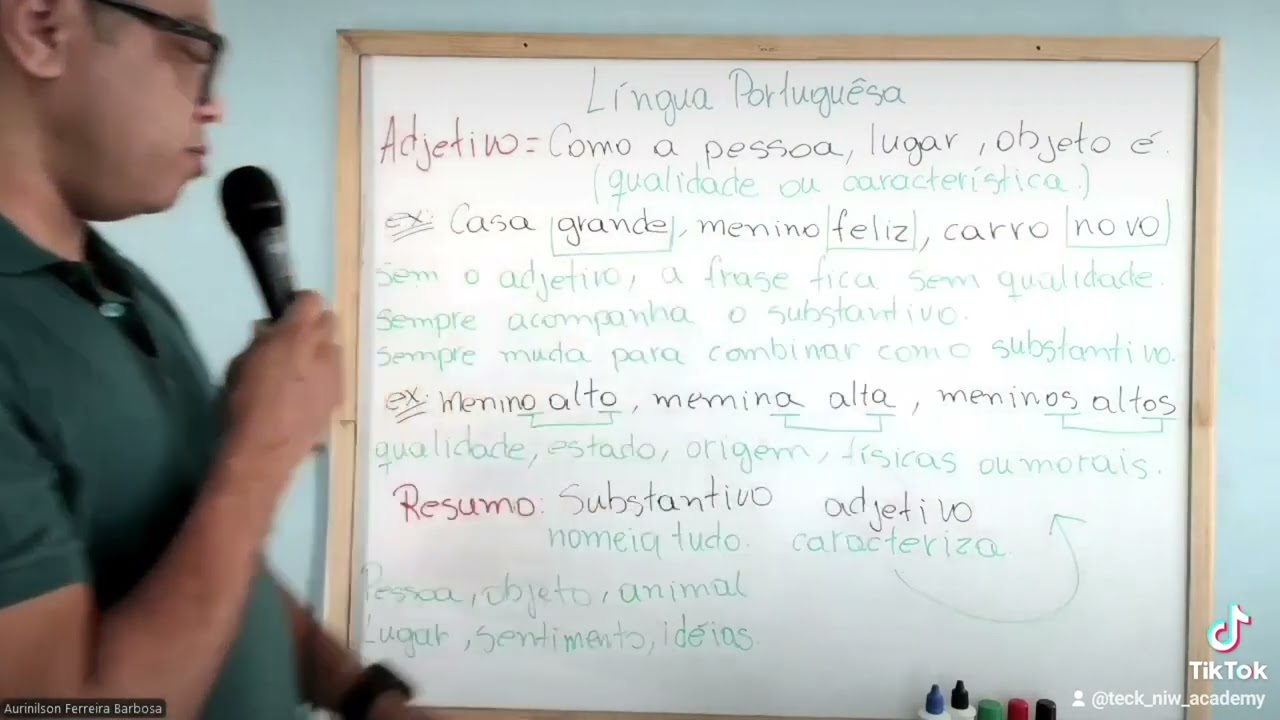 Língua Portuguêsa
Adjetivo = Como a pessoa, lugar, objeto é.
(qualidade ou característica.)
ex: Casa grande, menino feliz, carro novo
sem o adjetivo, a frase fica sem qualidade.
sempre acompanha o substantivo.
sempre muda para combinar como substantivo.
ex: menino alto, memina alta, meninos altos
qualidade, estado, origem, físicas ou morais.
Resumo: Substantivo adjetivo
nomeia tudo. caracteriza.
Pessoa, objeto, animal
Lugar, sentimento, idéias.
TikTok
@teck_niw_academy
Aurinilson Ferreira Barbosa